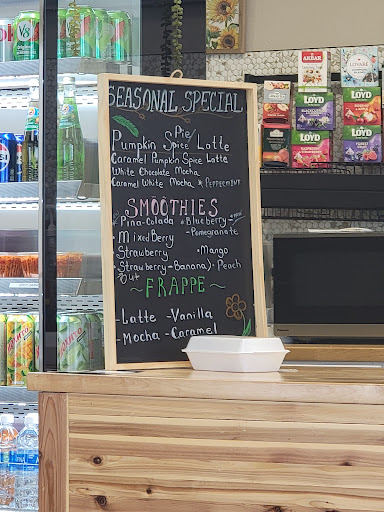 SEASONAL SPECIAL
Pie
Pumpkin Spice Latte
Caramel Pumpkin Spice Latte
White Chocolate Mocha
Caramel White Mocha * PEPPERMINT
SMOOTHIES
Pina-Colada * Blueberry-
Mixed Berry - Pomegranate
Strawberry • Mango
• Strawberry-Banana) • Peach
Out
~ FRAPPE ~
-Latte -Vanilla
-Mocha -Caramel
AKBAR
LOYD
LOYD
LOYD
LOYD
LOYD